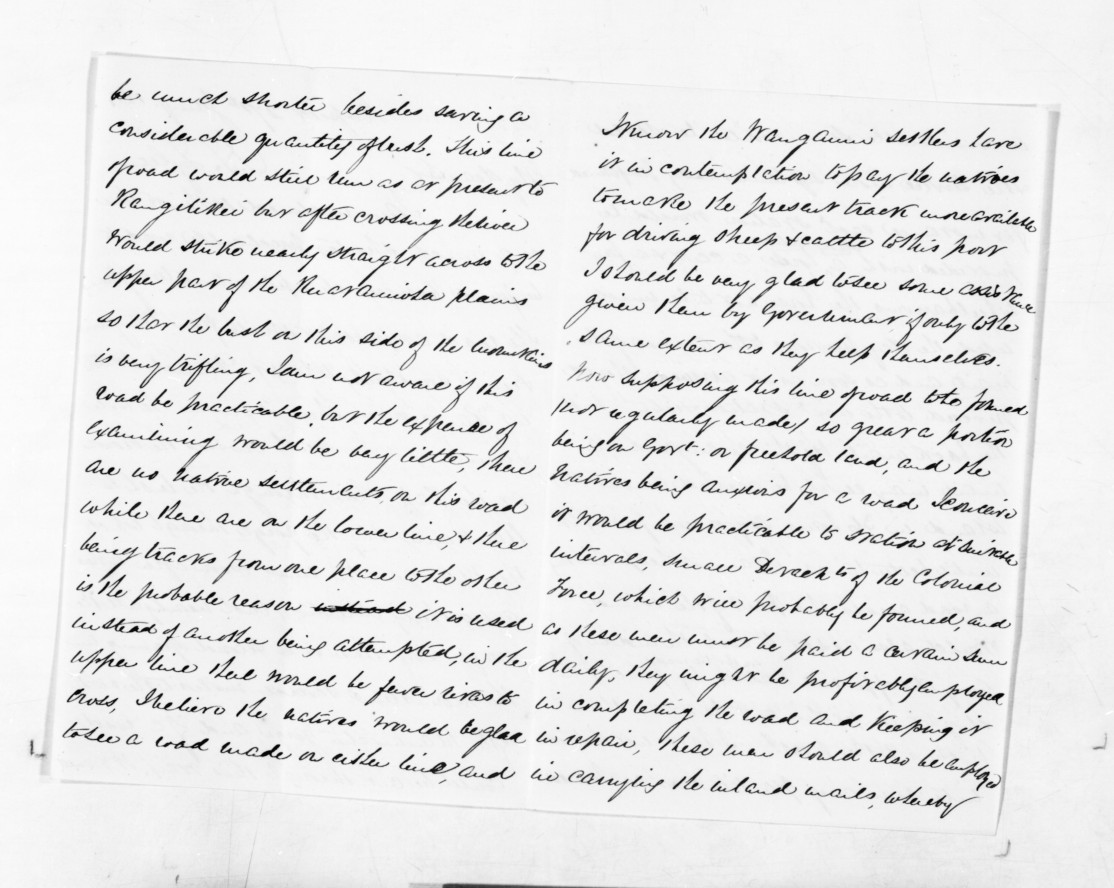 be much shorter besides saving a
considerable quantity of bush. This line
of road would still run as at present to
Rangitikei but after crossing the River
would strike nearly straight across to the
upper part of the Ruataniwha plains
so that the bush on this side of the mountains
is very trifling, I am not aware if this
road be practicable, but the expence of
examining would be very little, there
are no native settlements on this road
while there are on the lower line, & there
being tracks from one place to the other
is the probable reason instead it is used
instead of another being attempted, in the
upper line there would be fewer rivers to
cross, I believe the natives would be glad
to see a road made on either line, and
I know the Wanganui settlers have
it in contemplation to pay the natives
to make the present track more available
for driving sheep & cattle to this port
I should be very glad to see some assistance
given them by Government, if only to the
same extent as they help themselves.
Now supposing this line of road to be formed
(not regularly made) so great a portion
being on Govt. or freehold land, and the
natives being anxious for a road I conceive
it would be practicable to station at
intervals, small Detachts of the Colonial
Force, which will probably be formed, and
as these men must be paid a certain sum
daily, they might be profitably employed
in completing the road and keeping it
in repair, these men should also be employed
in carrying the inland mails, whereby